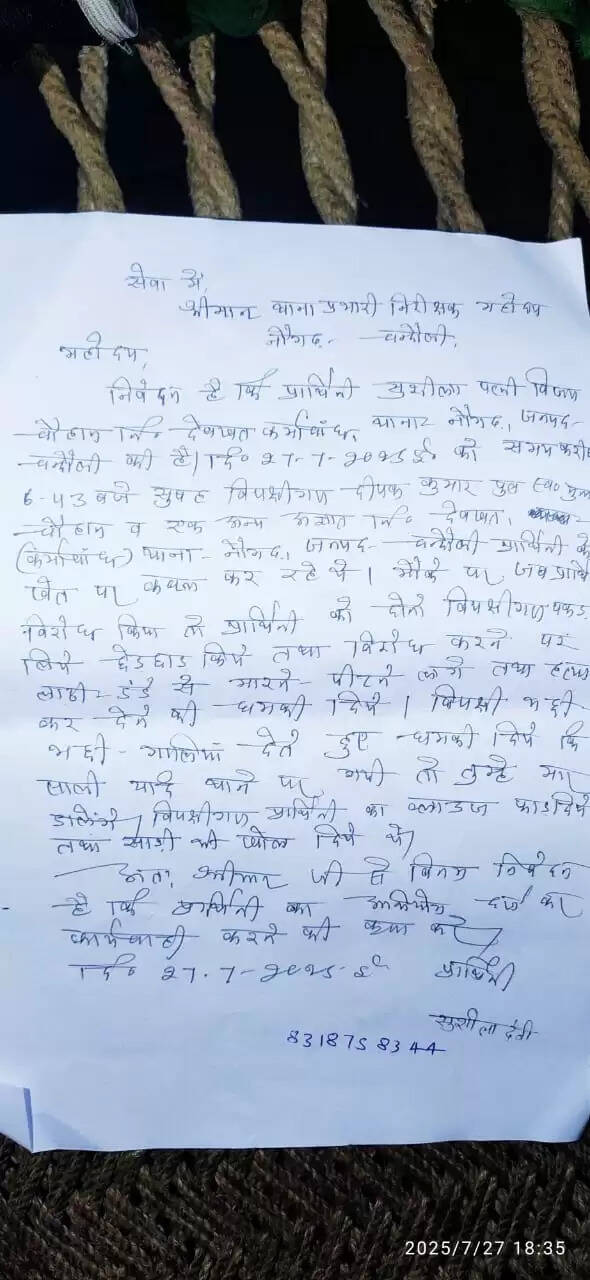 सेवा में,
श्रीमान थाना प्रभारी निरीक्षक महोदय
नौगढ़ - चन्दौली,
महोदय,
निवेदन है कि प्रार्थिनी सुशीला पत्नी विजय
चौहान नि० देवखत कर्माबांध, थाना नौगढ़, जनपद-
चन्दौली की है। दि० 27-7-2025 ई० को समय करीब
6-43 बजे सुबह विपक्षीगण दीपक कुमार पुत्र स्व०
चौहान व एक अन्य अज्ञात नि० देवखत,
(कर्माबांध) थाना- नौगढ़, जनपद- चन्दौली प्रार्थिनी के
खेत पर कब्जा कर रहे थे। मौके पर जब प्रार्थि
विरोध किया तो प्रार्थिनी को दोनो विपक्षीगण पकड़
लिये छेड़छाड़ किये तथा विरोध करने पर
लाठी- डंडे से मारने- पीटने लगे तथा हत्या
कर देने की धमकी दिये। विपक्षी भद्दी
भद्दी- गालियां देते हुए धमकी दिये कि
साली यदि थाने पर गयी तो तुम्हे मार
डालेंगे, विपक्षीगण प्रार्थिनी का ब्लाउज फाड़ दिये
तथा साड़ी भी खोल दिये थे।
अतः श्रीमान जी से विनम्र निवेदन
है कि प्रार्थिनी का अभियोग दर्ज कर
कार्यवाही करने की कृपा करें,
दि० 27-7-2025 ई० प्रार्थिनी
सुशीला देवी
8318758344
2025/7/27 18:35